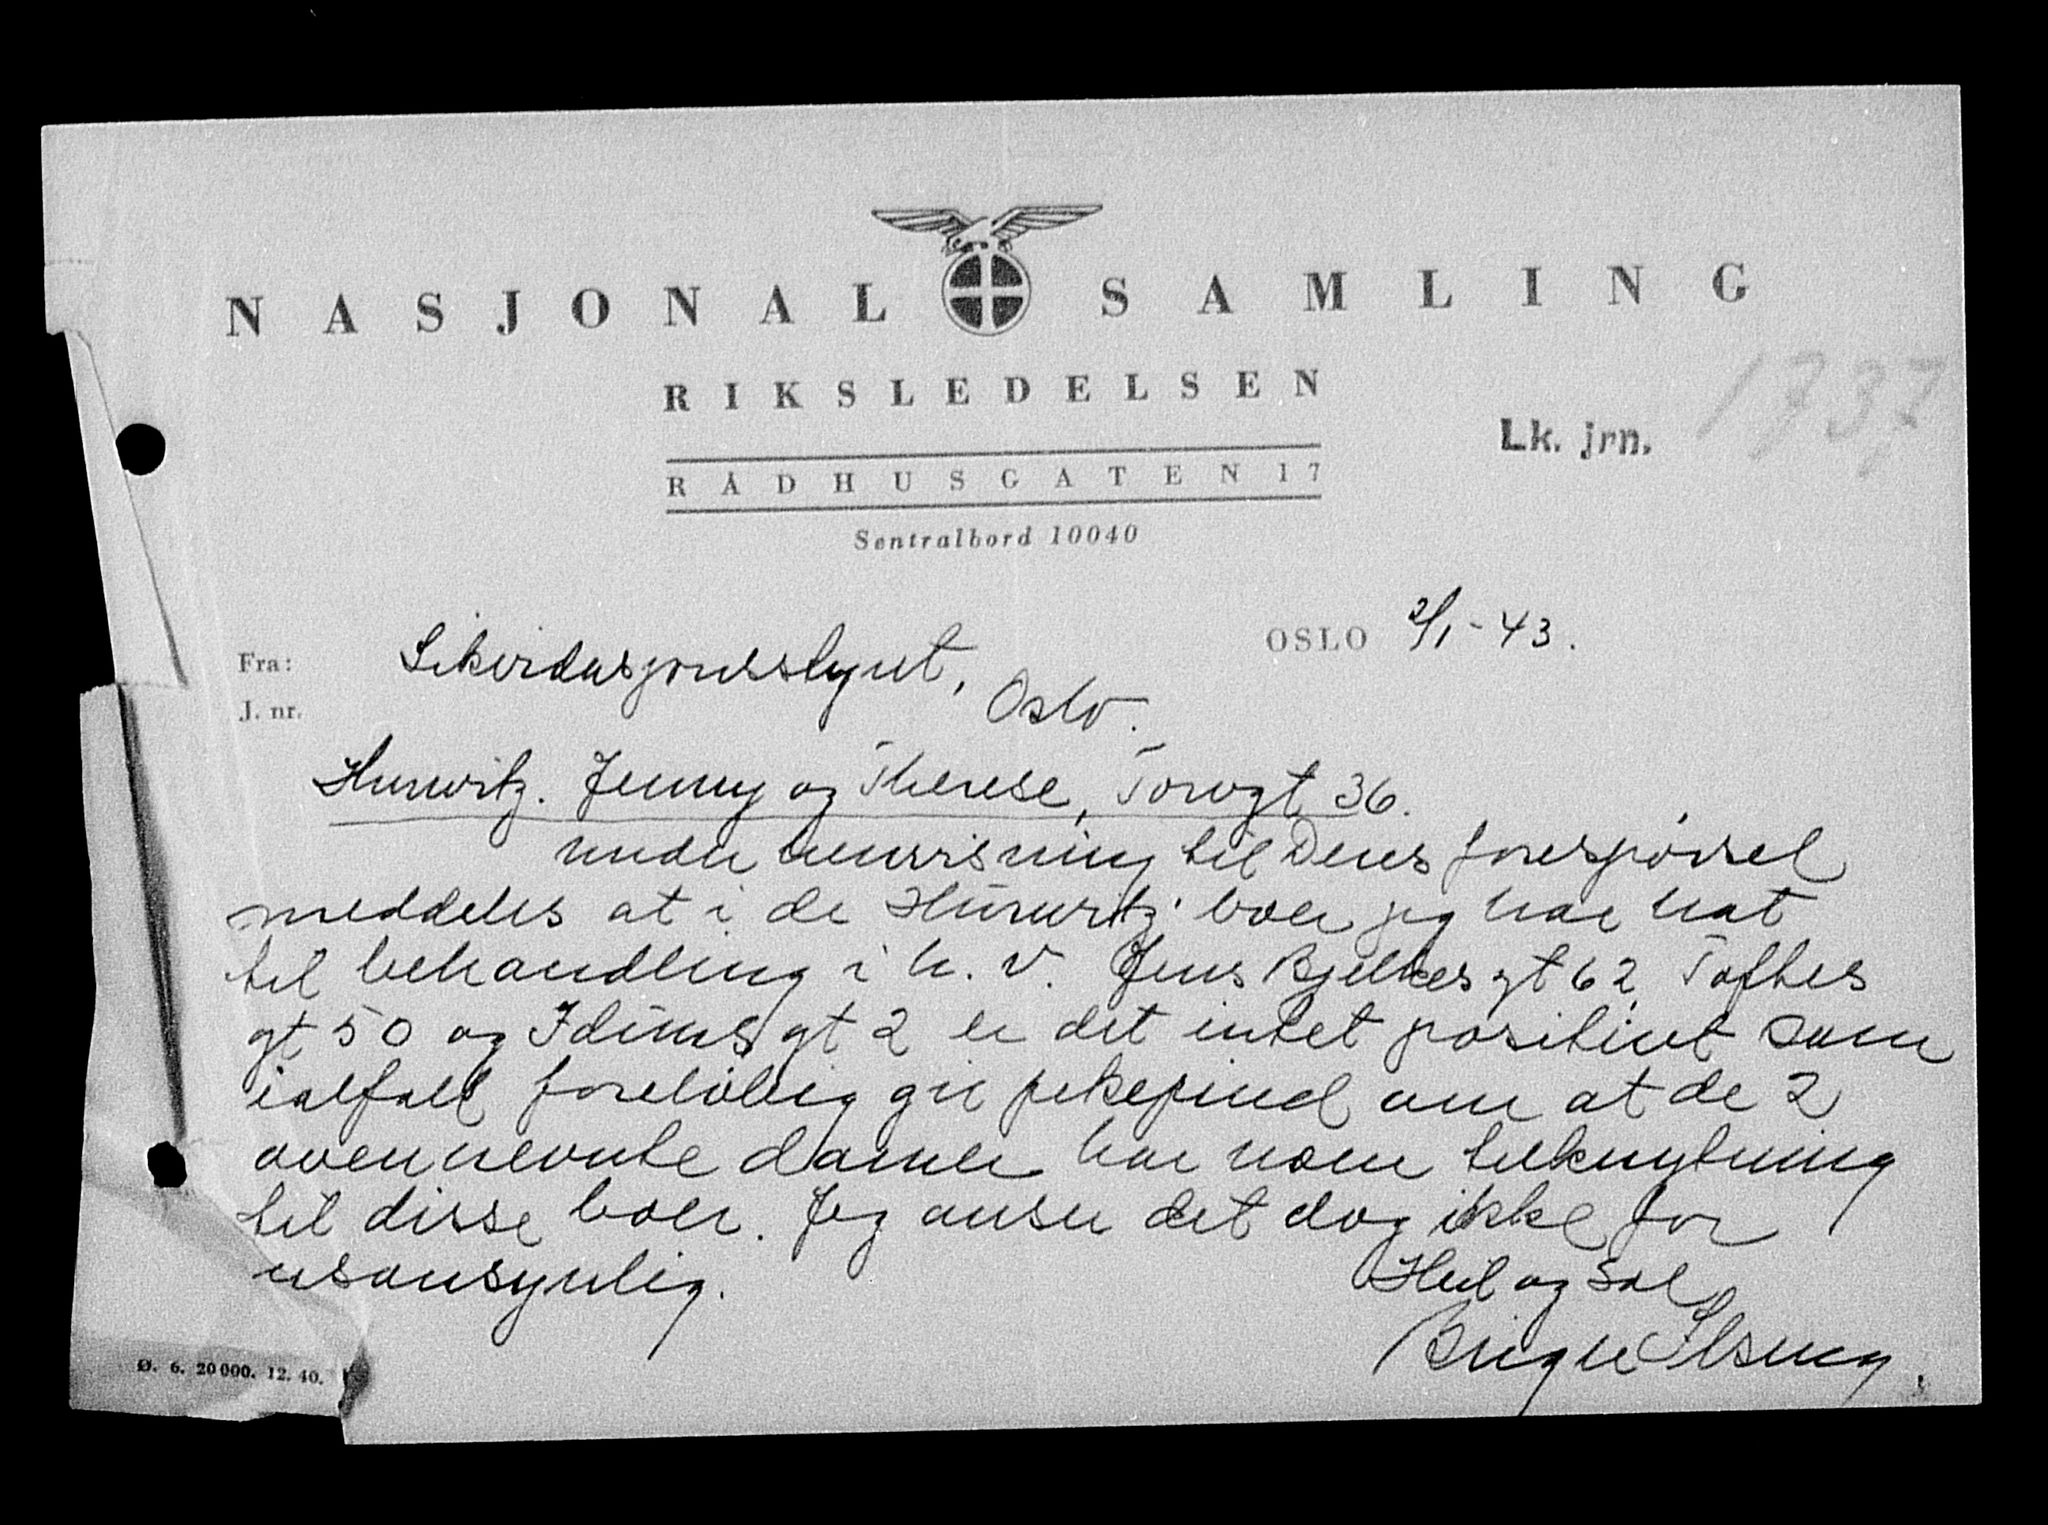 NASJONAL SAMLING
RIKSLEDELSEN
1737
Lk. jrn.
RÅDHUSGATEN 17
Sentralbord 10040
OSLO 2/1-43.
Fra: Likvidasjonsstyret,
J. nr. Oslo.
Hurwitz. Jenny og Therese, Torvgt 36.
under henvisning til Deres forespørsel
meddeles at i de Hurwitz' boer jeg har hat
til behandling i h. v. Jens Bjelkes gt 62, Toftes
gt 50 og Iduns gt 2 er det intet positivt som
ialfall foreløbig gir pekepind om at de 2
ovennevnte damer har noen tilknytning
til disse boer. Jeg anser det dog ikke for
usansynlig.
Heil og Sæl
Birger
Ø. 6. 20 000. 12. 40.